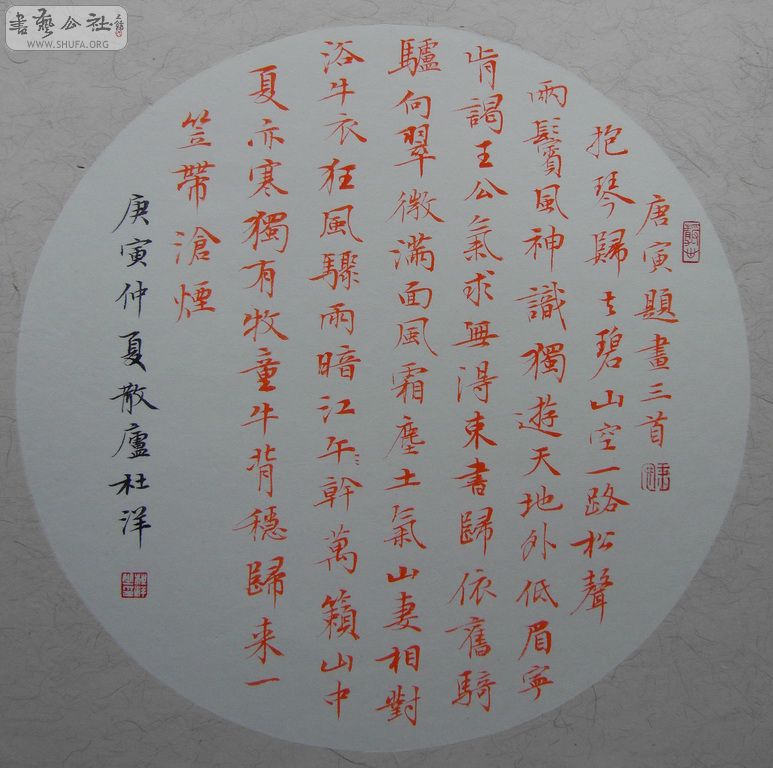 書藝公社
WWW.SHUFA.ORG
唐寅題畫三首
抱琴歸去碧山空一路松聲
兩鬢風神識獨遊天地外低眉寧
肯謁王公氣求無得束書歸依舊騎
驢向翠微滿面風霜塵土氣山妻相對
浴牛衣狂風驟雨暗江午幹萬籟山中
夏亦寒獨有牧童牛背穩歸来一
笠帶滄煙
庚寅仲夏散廬杜洋